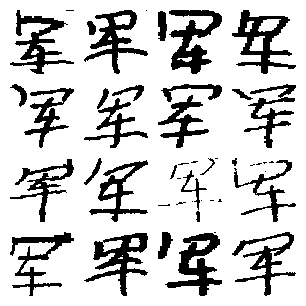 军 军 军 军
军 军 军 军
军 军 军 军
军 军 军 军